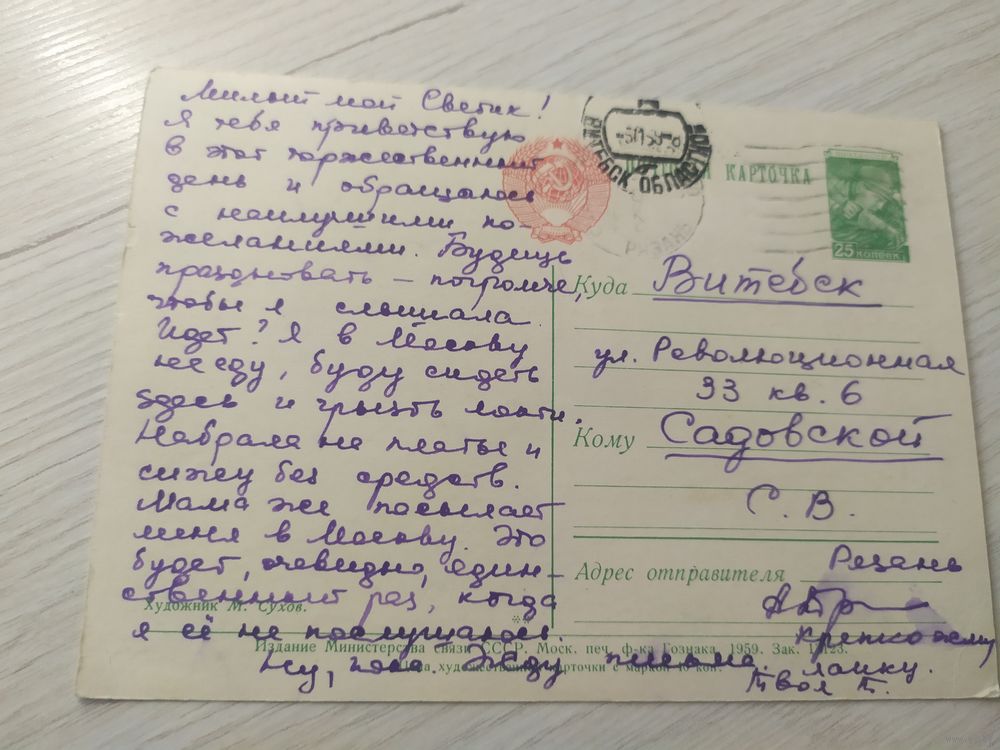 Милый мой Светик!
Я тебя приветствую
в этот торжественный
день и обращаюсь
с наилучшими по-
желаниями. Будешь
праздновать – погромче,
чтобы я слышала.
Идет? Я в Москву
не еду, буду сидеть
здесь и грызть локти.
Набрала на платье и
сижу без средств.
Мама же посылает
меня в Москву. Это
будет, очевидно, един-
ственный раз, когда
я её не послушаюсь.
Ну, пока. Жду письма.
Крепко жму
лапку.
Твоя Т.
ВИТЕБСК ОБЛАСТНОЙ
КАРТОЧКА
РЯЗАНЬ
25 КОПЕЕК
Куда Витебск
ул. Революционная
33 кв. 6
Кому Садовской
С. В.
Адрес отправителя Рязань
Художник М. Сухов.
Издание Министерства связи СССР. Моск. печ. ф-ка Гознака. 1959. Зак.
художественной карточки с маркой 40 коп.